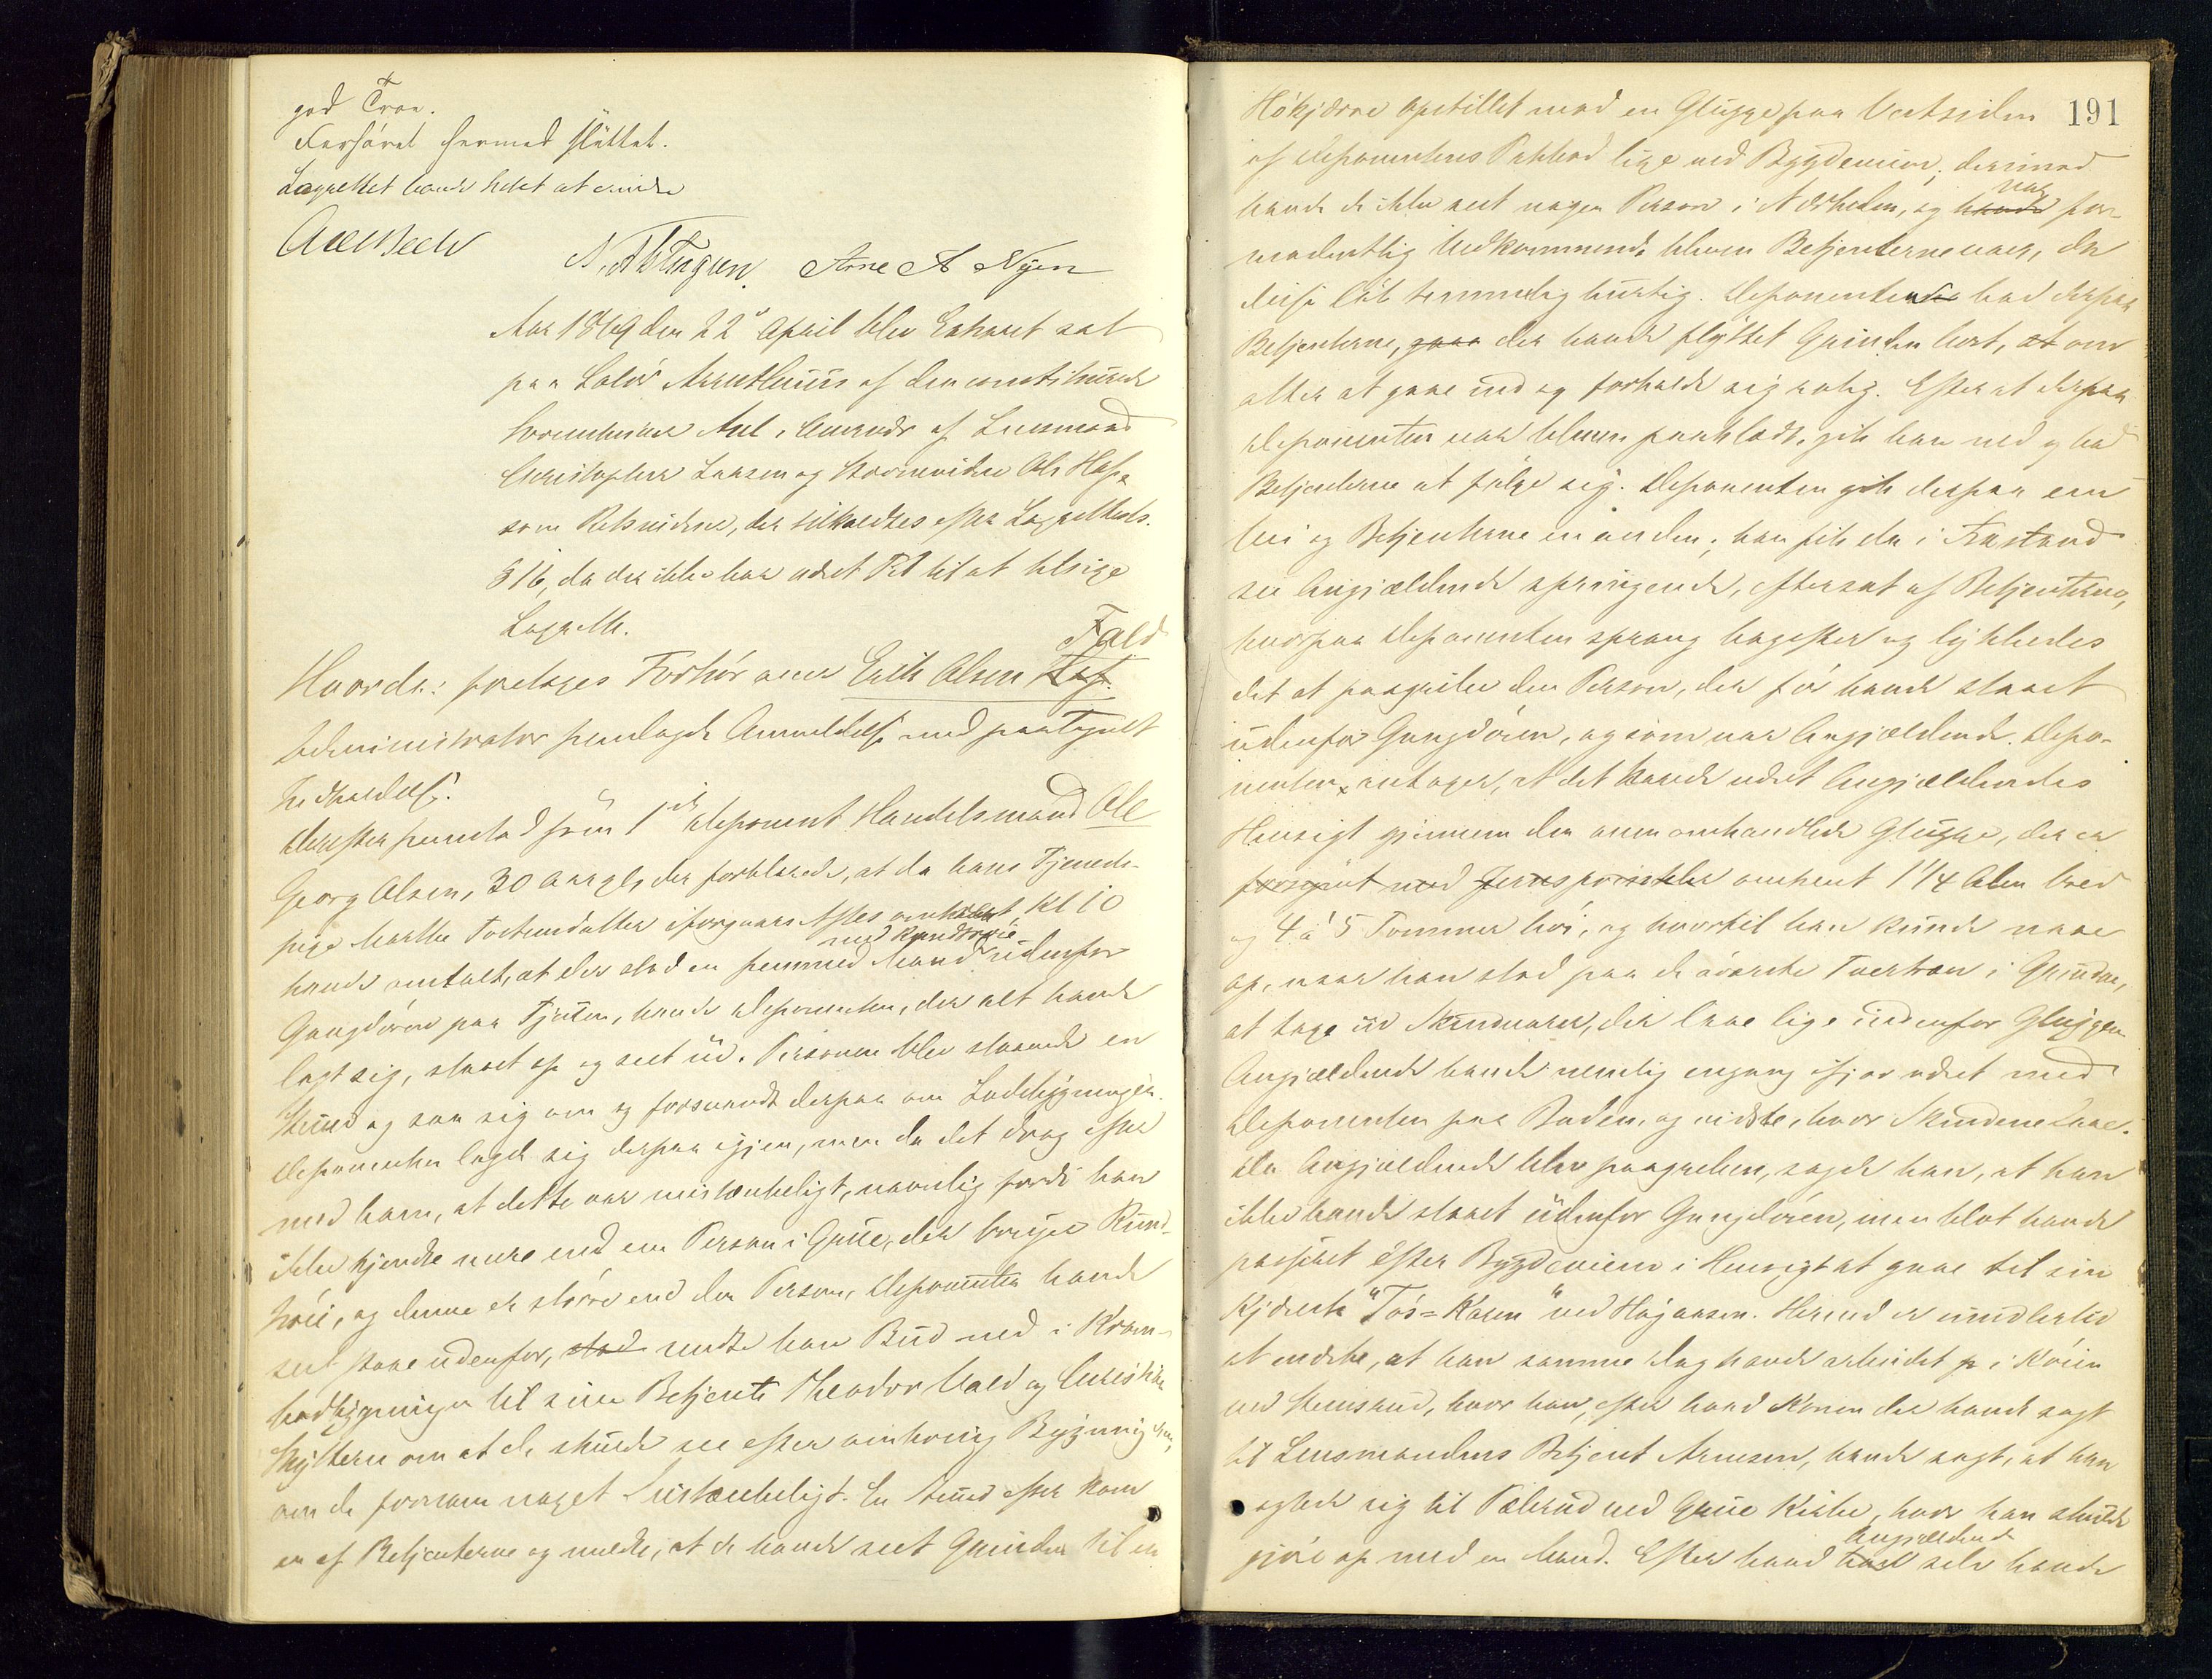 god Troe.
Forhøret hermed sluttet.
Lagrettet havde Intet at erindre
N. A. Tingen. Arne A Nyen
Aar 1869 den 22de April blev Extraret sat
paa Solør Arresthuus af den constituerede
Sorenskriver Aul, i Overvær af Lensmand
Christopher Larsen og Stævnevidne Ole Hasp
som Retsvidner, der tilkaldtes efter Lagrettesl.
§ 16, da der ikke har været Tid til at tilsige
Lagrette.
Hvorda: foretoges Forhør over Erik Olsen Fald
Administrator fremlagde Anmeldelse med paategnet
Fastholdelse.
Derefter fremstod som 1ste Deponent Handelsmand Ole
Georg Olsen, 30 Aar gl, der forklarede, at da hans Tjeneste-
pige Marthe Torstensdatter iforgaars Aftes omtrent Kl 10
havde omtalt, at der stod en fremmed Mand med Rundtrøie udenfor
Gangdøren paa Tjunen, havde Deponenten, der alt havde
lagt sig, staaet op og seet ud. Personen blev staaende en
Stund og saa sig om og forsvandt derpaa om Ladebygningen.
Deponenten lagde sig derpaa igjen, men da det drog efter
med ham, at dette var mistænkeligt, navnlig fordi han
ikke kjendte mere end en Person i Grue, der bruger Rund-
trøie, og denne er større end den Person, Deponenten havde
seet staae udenfor, stod sendte han Bud ned i Kram-
bodbygningen til sine Betjente Theodor Uald og Christian
Skyttern om at de skulde see efter omkring Bygningerne,
om de fornam noget Mistænkeligt. En Stund efter kom
en af Betjenterne og meldte, at de havde seet Grinden til en
191
Høkjærre opstillet mod en Glugge paa Vestsiden
af Deponentens Pakbod lige ved Bygdeveien, derimod
havde de ikke seet nogen Person i Nærheden, og havde var for-
modentlig Vedkommende bleven Betjenterne vaer, da
disse løb temmelig hurtig. Deponenten bad derpaa
Betjenterne, gaae der havde flyttet Grinden bort, at om
atter at gaae ind og forholde sig rolig. Efter at derpaa
Deponenten var bleven paaklædt, gik han ned og bad
Betjenterne at følge sig. Deponenten gik derpaa een
Vei og Betjenterne en anden; han fik da i Frastand
see Angjældende springende, eftersat af Betjenterne,
hvorpaa Deponenten sprang bagefter og lykkedes
det at paagribe den Person, der før havde staaet
udenfor Gangdøren, og som var Angjældende. Depo-
nenten antager, at det havde været Angjældendes
Hensigt gjennem den ovenomhandlede Glugge, der er
forsynet med Jernsprinkler omtrent 1 1/4 Alen bred
og 4 à 5 Tommer høi, og hvortil han kunde naae
op, naar han stod paa de øverste Tvertræn i Grinden,
at tage ud Skindvarer, der laae lige indenfor Gluggen.
Angjældende havde nemlig engang ifjor været med
Deponenten paa Boden, og vidste, hvor Skindene laae.
Da Angjældende blev paagreben, sagde han, at han
ikke havde staaet udenfor Gangdøren, men blot havde
passeret efter Bygdeveien i Hensigt at gaae til sin
Kjæreste "Tøs=Karen" ved Hagaasen. Herved er imidlertid
at mærke, at han samme Dag havde arbeidet p i Køien
ved Steinsrud, hvor han, efter hvad Konen der havde sagt
til Lensmandens Betjent Arnesen, havde sagt, at han
agtede sig til Pælerud ved Grue Kirke, hvor han skulde
gjøre op med en Mand. Efter hvad han Angjældende selv havde